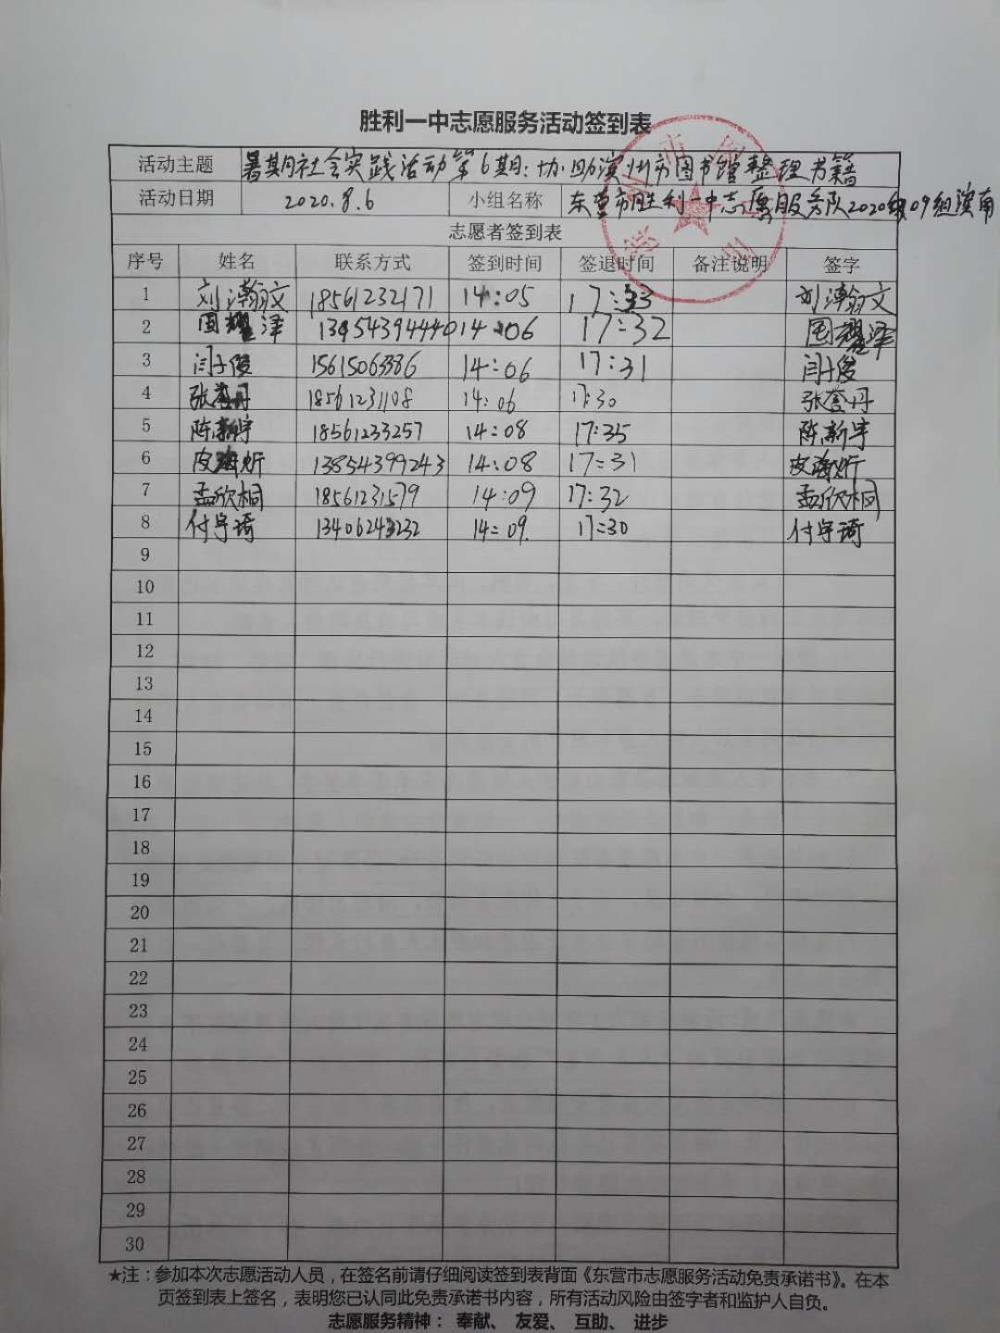 胜利一中志愿服务活动签到表
活动主题 暑期社会实践活动第6期:协助滨州市图书馆整理书籍
活动日期 2020.8.6 小组名称 东营市胜利一中志愿服务队2020级09组滨南
志愿者签到表
序号 姓名 联系方式 签到时间 签退时间 备注说明 签字
1 刘瀚文 18561232171 14:05 17:33 刘瀚文
2 国耀泽 13954394440 14:06 17:32 国耀泽
3 闫子俊 15615063386 14:06 17:31 闫子俊
4 张誉丹 18561231108 14:06 17:30 张誉丹
5 陈新宇 18561233257 14:08 17:35 陈新宇
6 皮 炘 13854399243 14:08 17:31 皮 炘
7 孟欣桐 18561231579 14:09 17:32 孟欣桐
8 付宇琦 13406243232 14:09. 17:30 付宇琦
9
10
11
12
13
14
15
16
17
18
19
20
21
22
23
24
25
26
27
28
29
30
★注：参加本次志愿活动人员，在签名前请仔细阅读签到表背面《东营市志愿服务活动免责承诺书》。在本
页签到表上签名，表明您已认同此免责承诺书内容，所有活动风险由签字者和监护人自负。
志愿服务精神： 奉献、 友爱、 互助、 进步